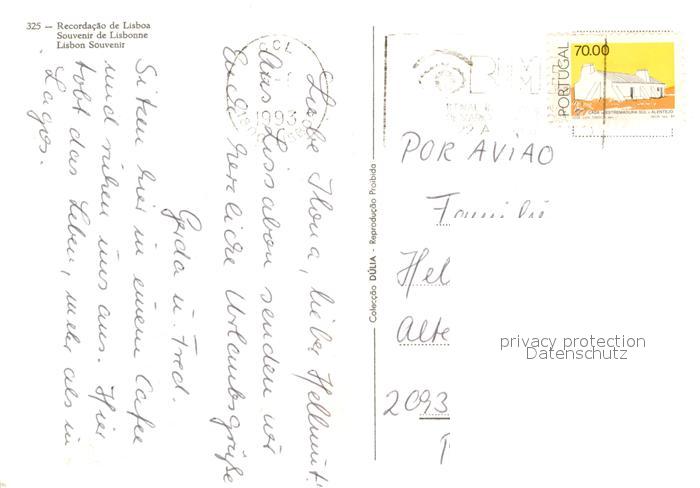 325 — Recordação de Lisboa
Souvenir de Lisbonne
Lisbon Souvenir
Liebe Ilona, lieber Hellmut!
Aus Lissabon senden wir
Euch herzliche Urlaubsgrüße
Gerda u. Fred.
Sitzen hier in einem Cafee
und ruhen uns aus. Hier
tobt das Leben, mehr als in
Lagos.
Colecção DÚLIA - Reprodução Proibida
1993
PORTUGAL
70.00
POR AVIAO
Hel
Alte
2093
privacy protection
Datenschutz